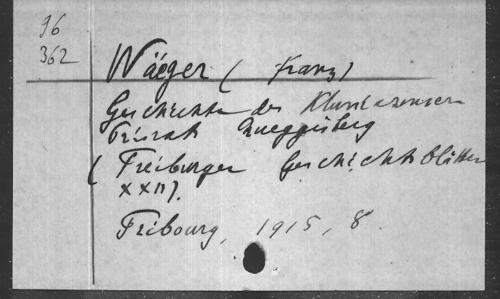 96
362
Wäger (Franz)
Geschichte des Kluniazenser
Priorats Rueggisberg
(Freiburger Geschichtsblätter
XXII).
Fribourg, 1915, 8.